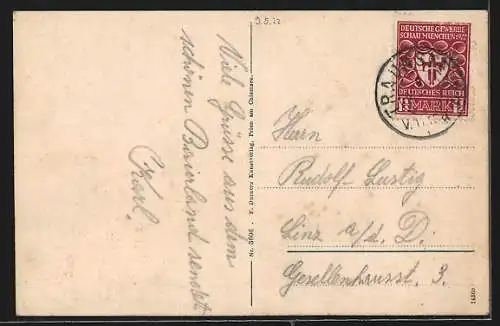 9.5.22
Viele Grüsse aus dem
schönen Baierland sendet
Karl.
Nr. 3604 · F. Kunstverlag, Prien am Chiemsee.
DEUTSCHE GEWERBE
SCHAU MÜNCHEN 1922
DEUTSCHES REICH
MARK
TRAUNS
Herrn
Rudolf Lustig
Linz a/d. D.
Gesellenhausst. 3.